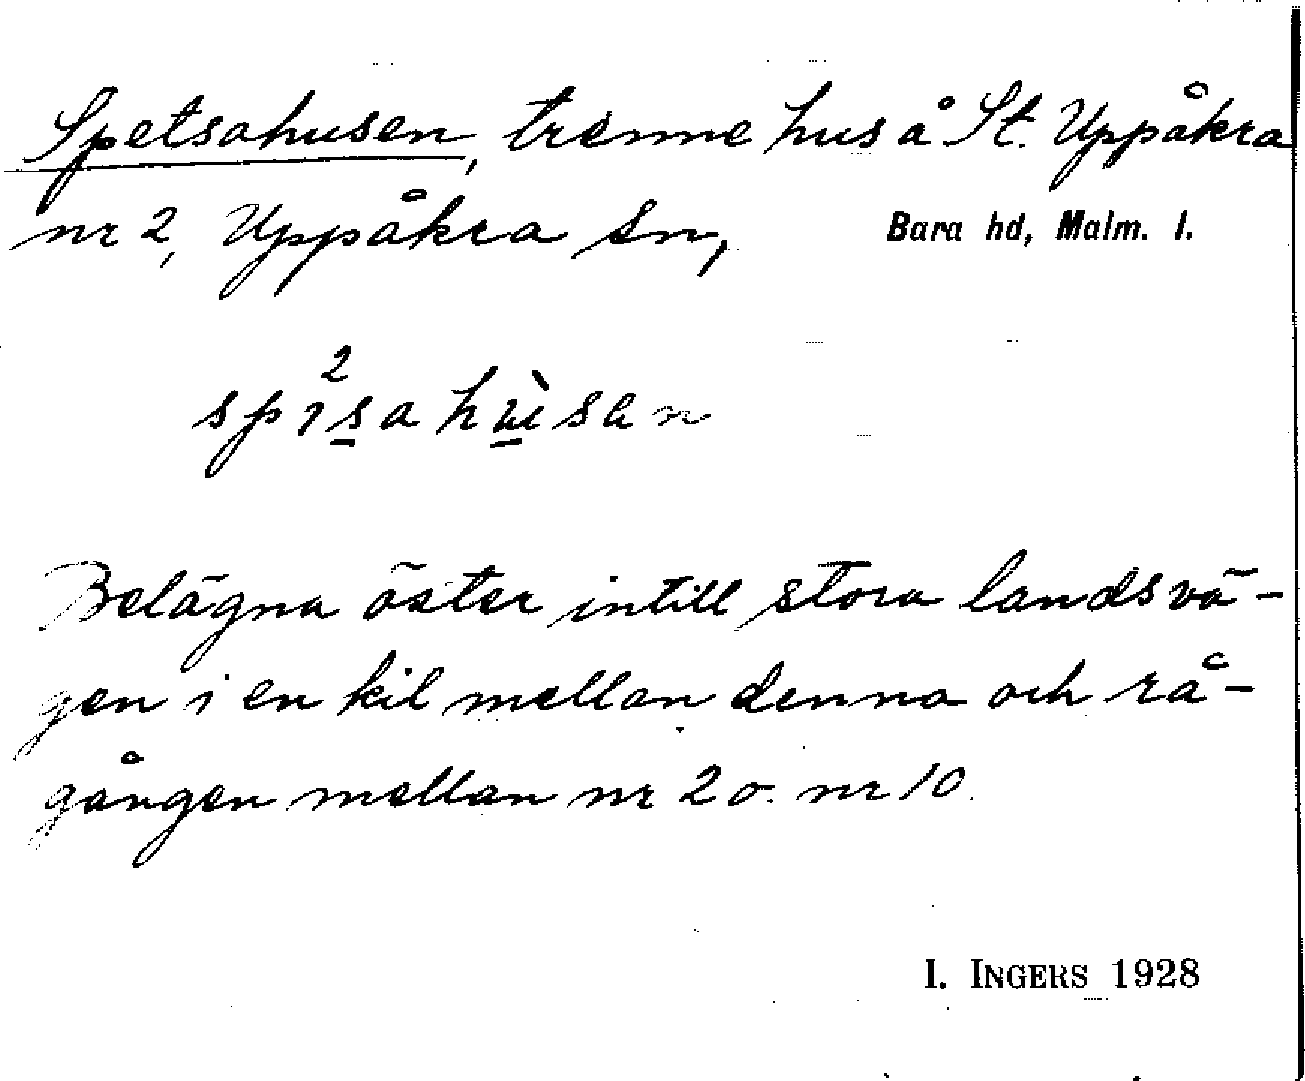 Spetsahusen, trenne hus å St. Uppåkra
nr 2, Uppåkra sn, Bara hd, Malm. l.
spɪ²s̱ahù̱san
Belägna öster intill stora landsvä-
gen i en kil mellan denna och rå-
gången mellan nr 2 o. nr 10.
I. INGERS 1928